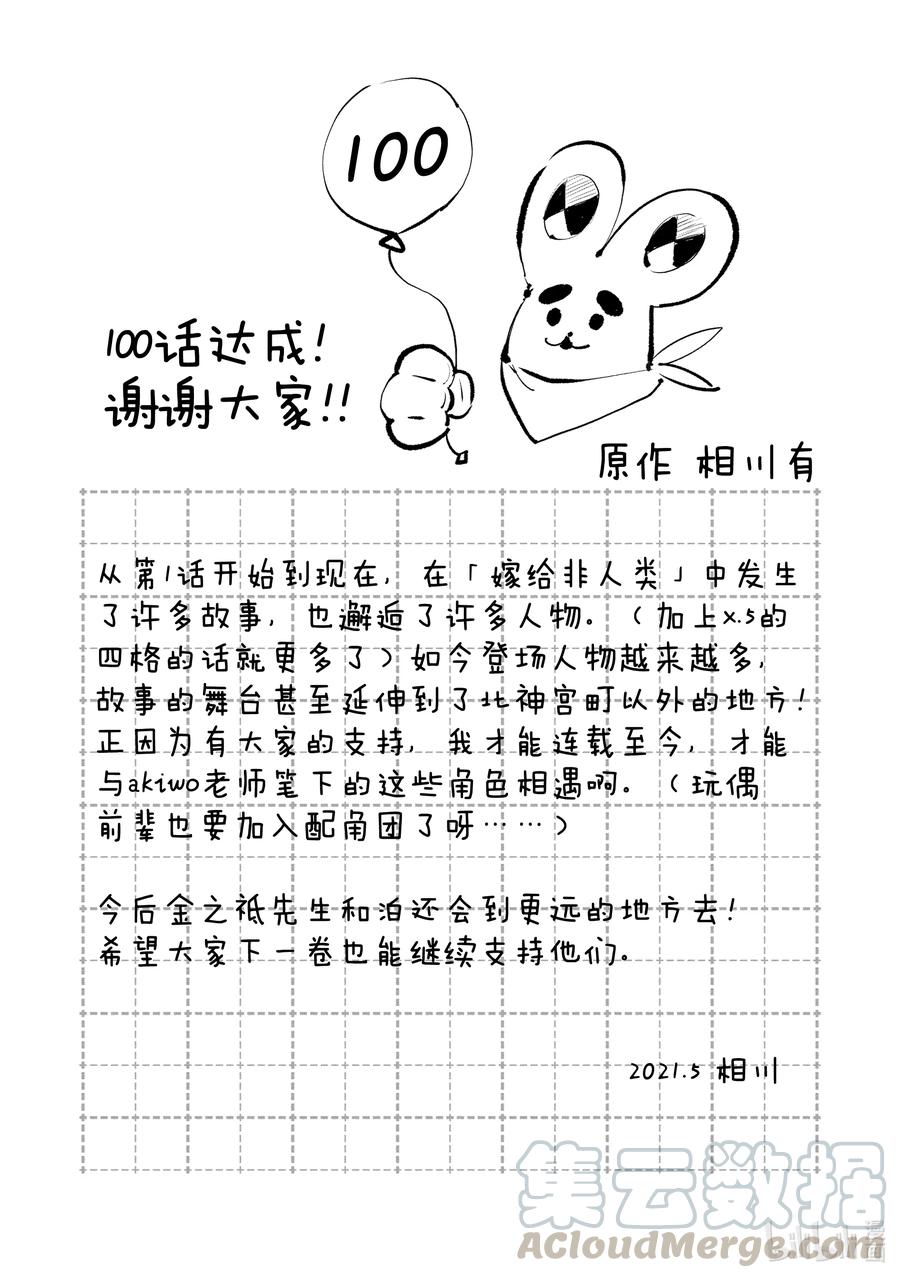 100
100话达成!
谢谢大家!!
原作 相川有
从第1话开始到现在，在「嫁给非人类」中发生
了许多故事，也邂逅了许多人物。（加上x.5的
四格的话就更多了）如今登场人物越来越多，
故事的舞台甚至延伸到了北神宫町以外的地方!
正因为有大家的支持，我才能连载至今，才能
与akiwo老师笔下的这些角色相遇啊。（玩偶
前辈也要加入配角团了呀……）
今后金之祗先生和泊还会到更远的地方去!
希望大家下一卷也能继续支持他们。
2021.5 相川
集云数据
ACloudMerge.com